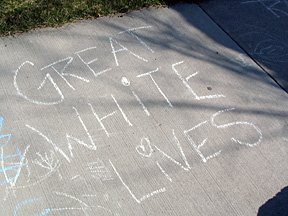 GREAT
WHITE
LIVES